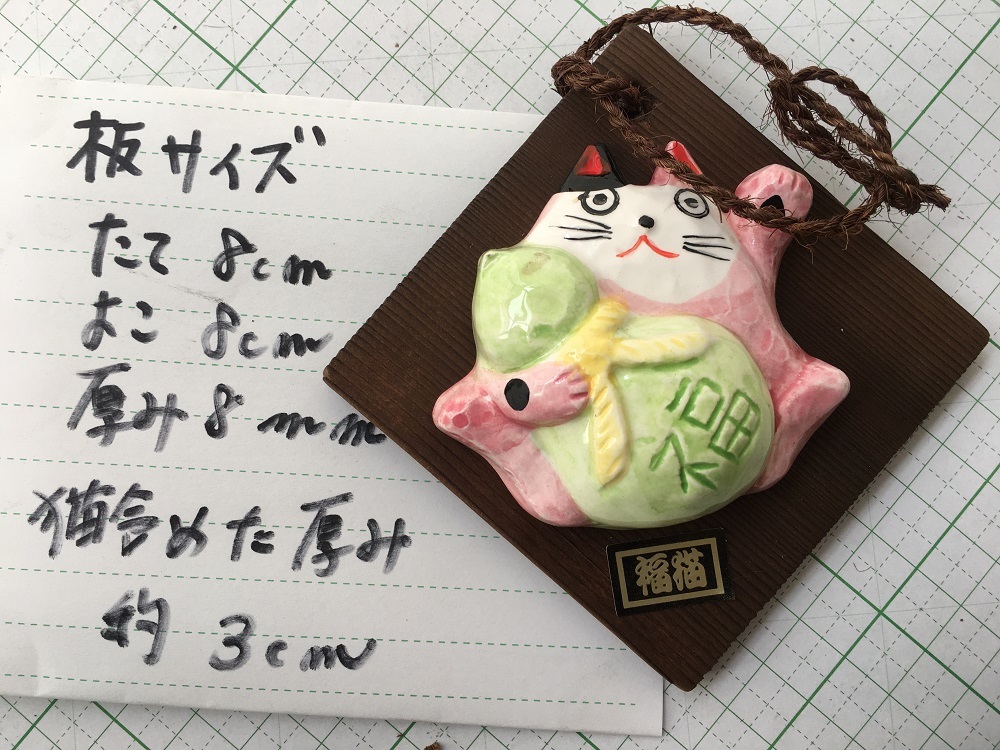 板サイズ
たて 8cm
よこ 8cm
厚み 8mm
猫含めた厚み
約 3cm
福
福猫